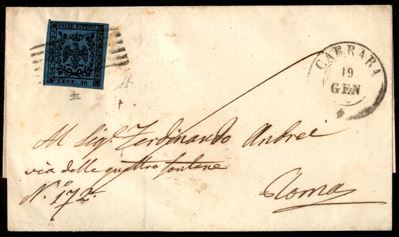 POSTE ESTENSI
CENT. 40
CARRARA
19
GEN
Al Sig.r Ferdinando Andrei
via delle quattro fontane
N.o 172.
Roma